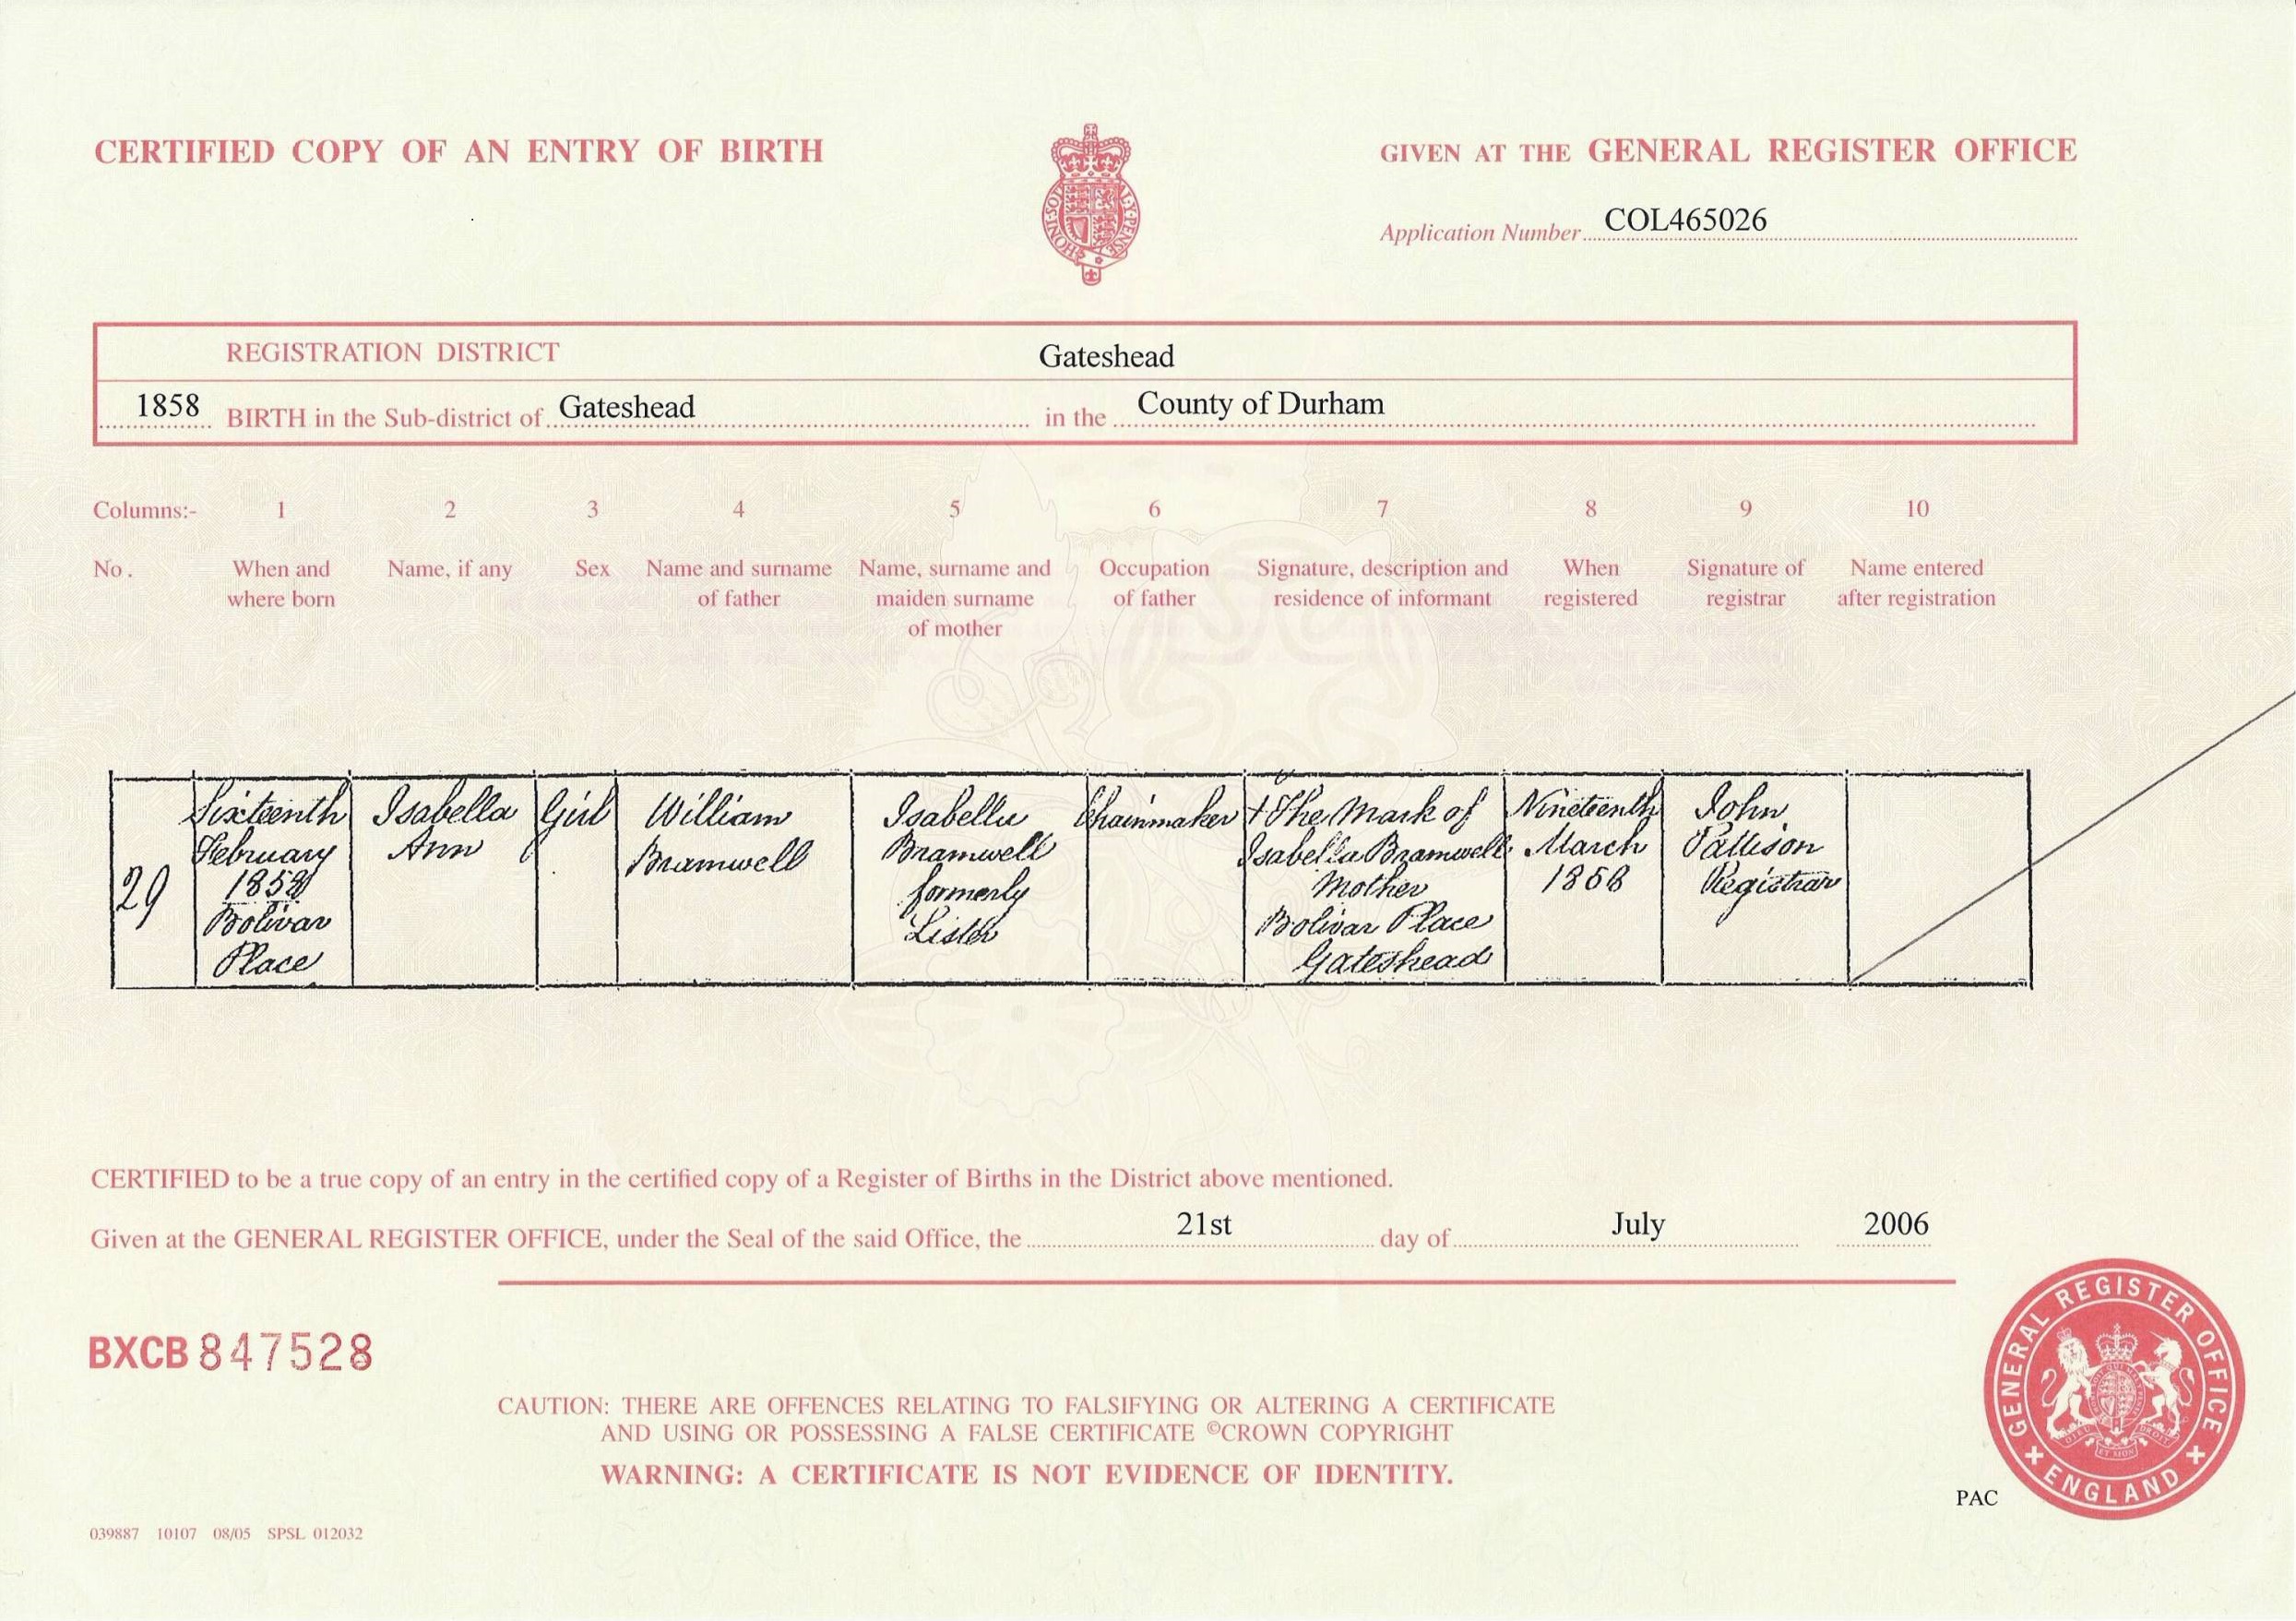 CERTIFIED COPY OF AN ENTRY OF BIRTH
GIVEN AT THE GENERAL REGISTER OFFICE
Application Number COL465026
HONI·SOIT·QUI·MAL·Y·PENSE
REGISTRATION DISTRICT Gateshead
1858 BIRTH in the Sub-district of Gateshead in the County of Durham
Columns:- 1 2 3 4 5 6 7 8 9 10
No. When and Name, if any Sex Name and surname Name, surname and Occupation Signature, description and When Signature of Name entered
where born of father maiden surname of father residence of informant registered registrar after registration
of mother
29
Sixteenth
February
1858
Bolivar
Place
Isabella
Ann
Girl
William
Bramwell
Isabella
Bramwell
formerly
Lister
Chainmaker
+ The Mark of
Isabella Bramwell
Mother
Bolivar Place
Gateshead
Nineteenth
March
1858
John
Pattison
Registrar
CERTIFIED to be a true copy of an entry in the certified copy of a Register of Births in the District above mentioned.
Given at the GENERAL REGISTER OFFICE, under the Seal of the said Office, the 21st day of July 2006
BXCB 847528
CAUTION: THERE ARE OFFENCES RELATING TO FALSIFYING OR ALTERING A CERTIFICATE
AND USING OR POSSESSING A FALSE CERTIFICATE ©CROWN COPYRIGHT
WARNING: A CERTIFICATE IS NOT EVIDENCE OF IDENTITY.
GENERAL REGISTER OFFICE
ENGLAND
PAC
039887 10107 08/05 SPSL 012032